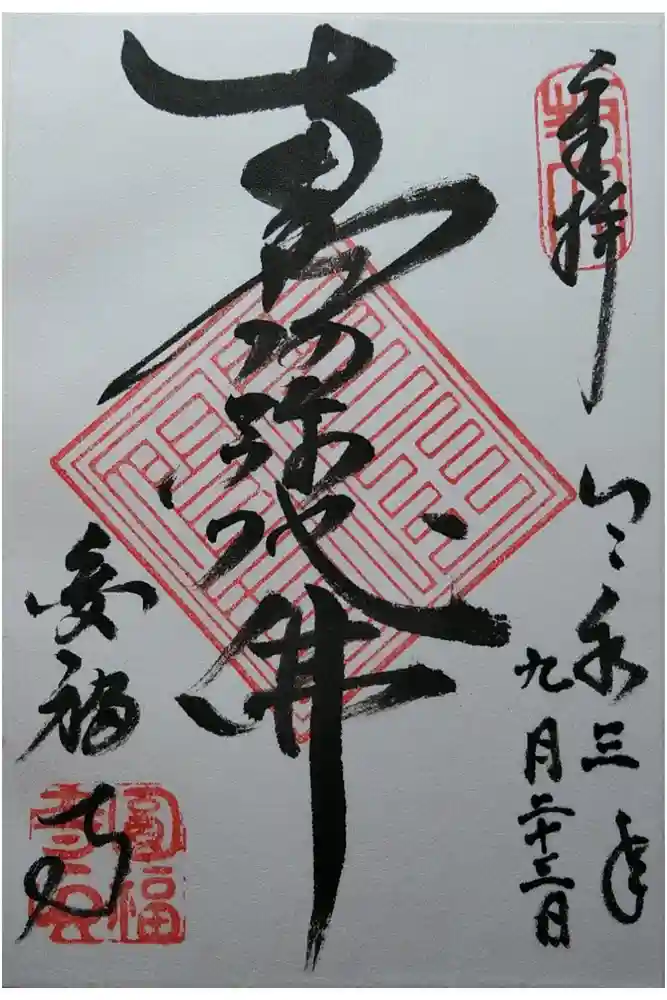 奉拝
令和三年
九月二十三日
南無阿弥陀佛
圓福寺